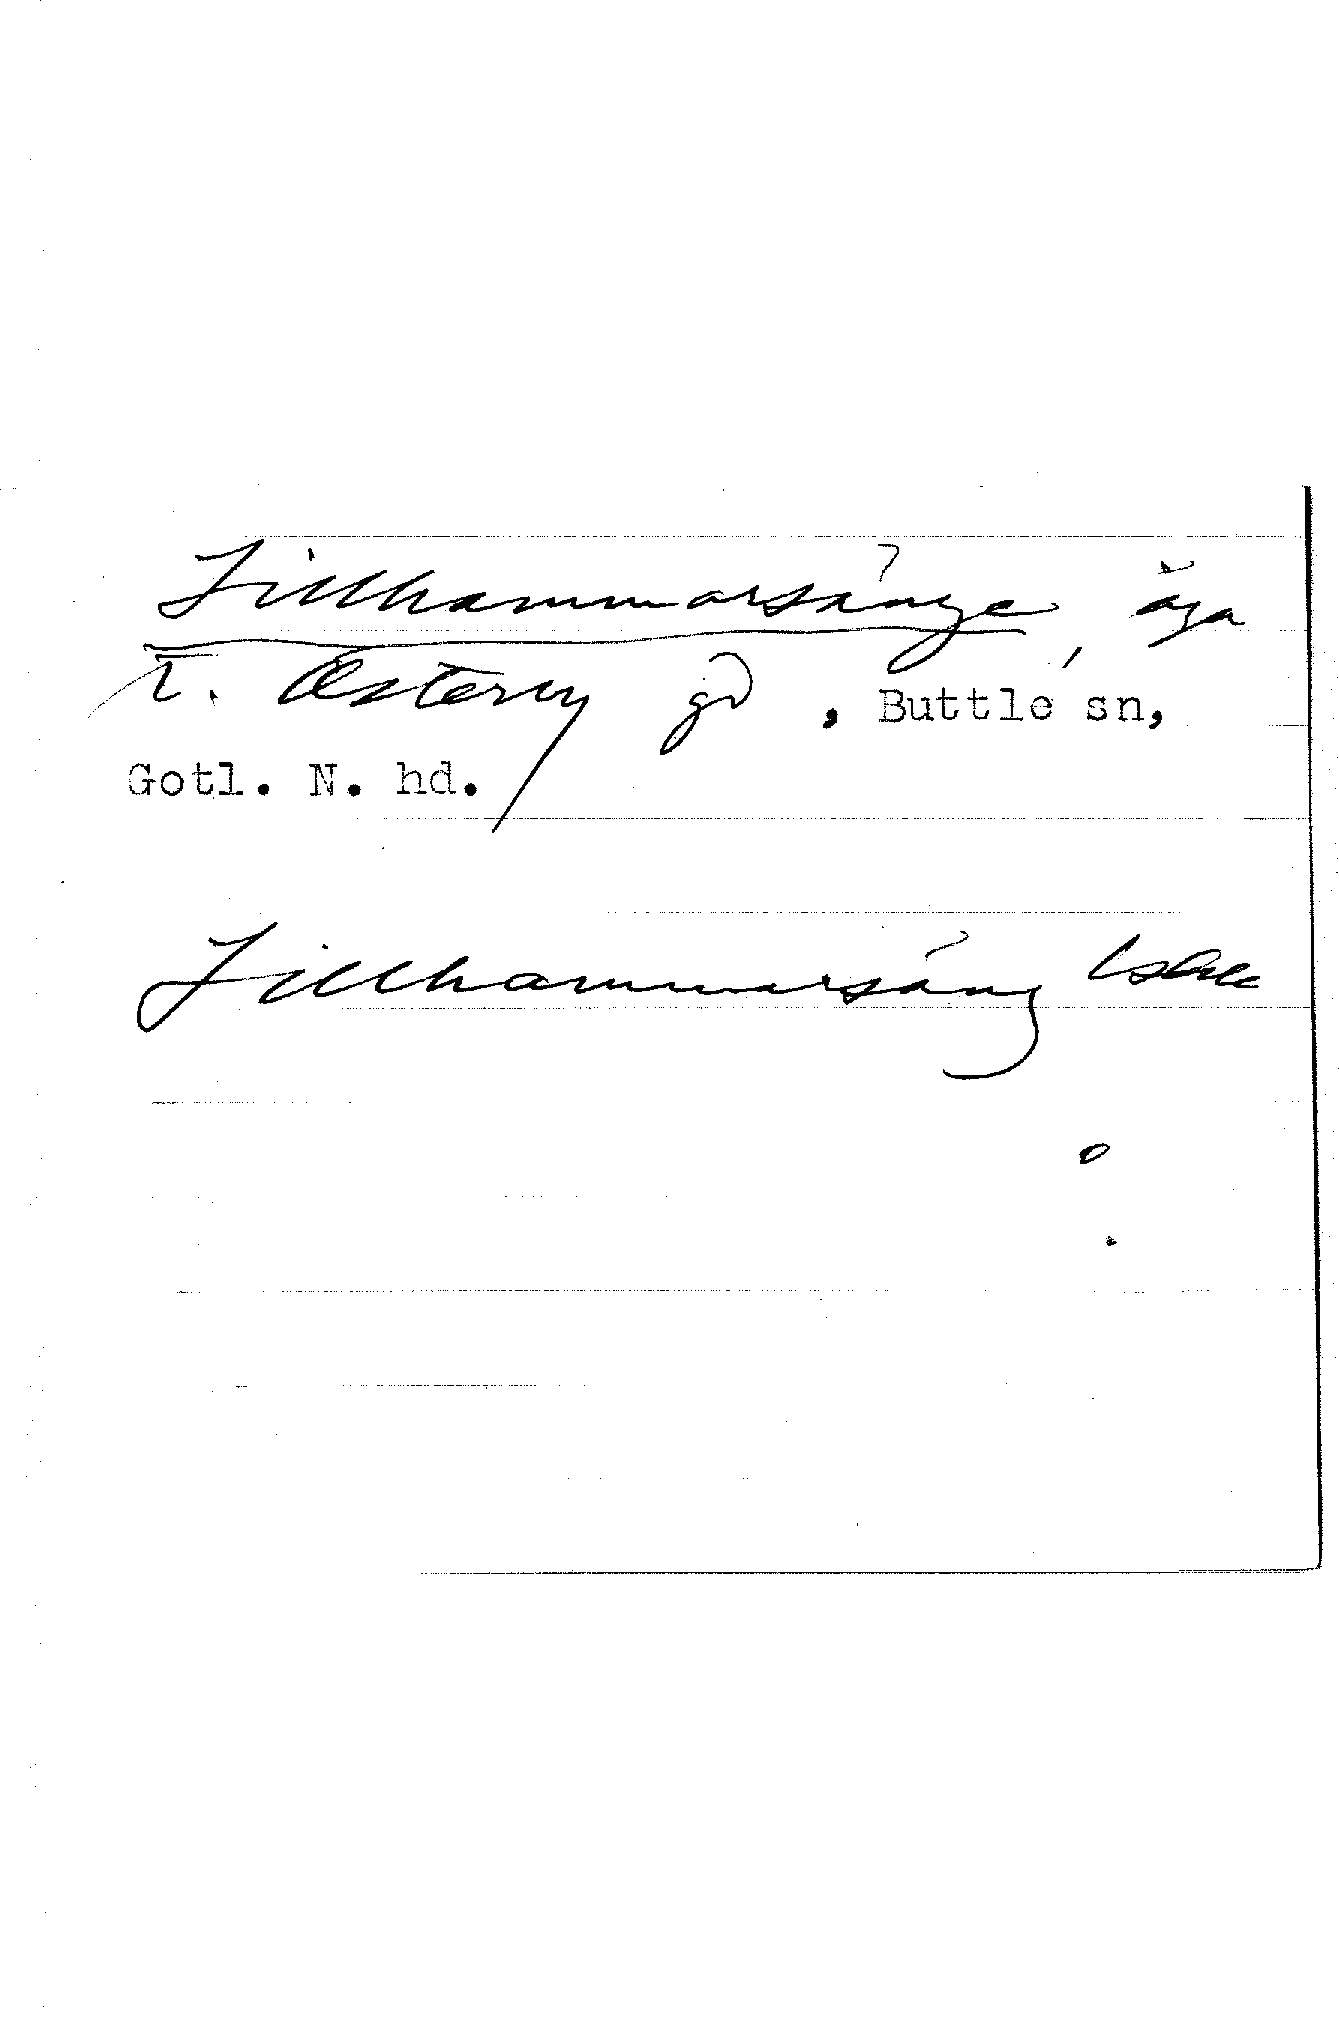 Lillhammarsänge, äga
t. Östervy gd, Buttle sn,
Gotl. N. hd.
Lillhammarsäng